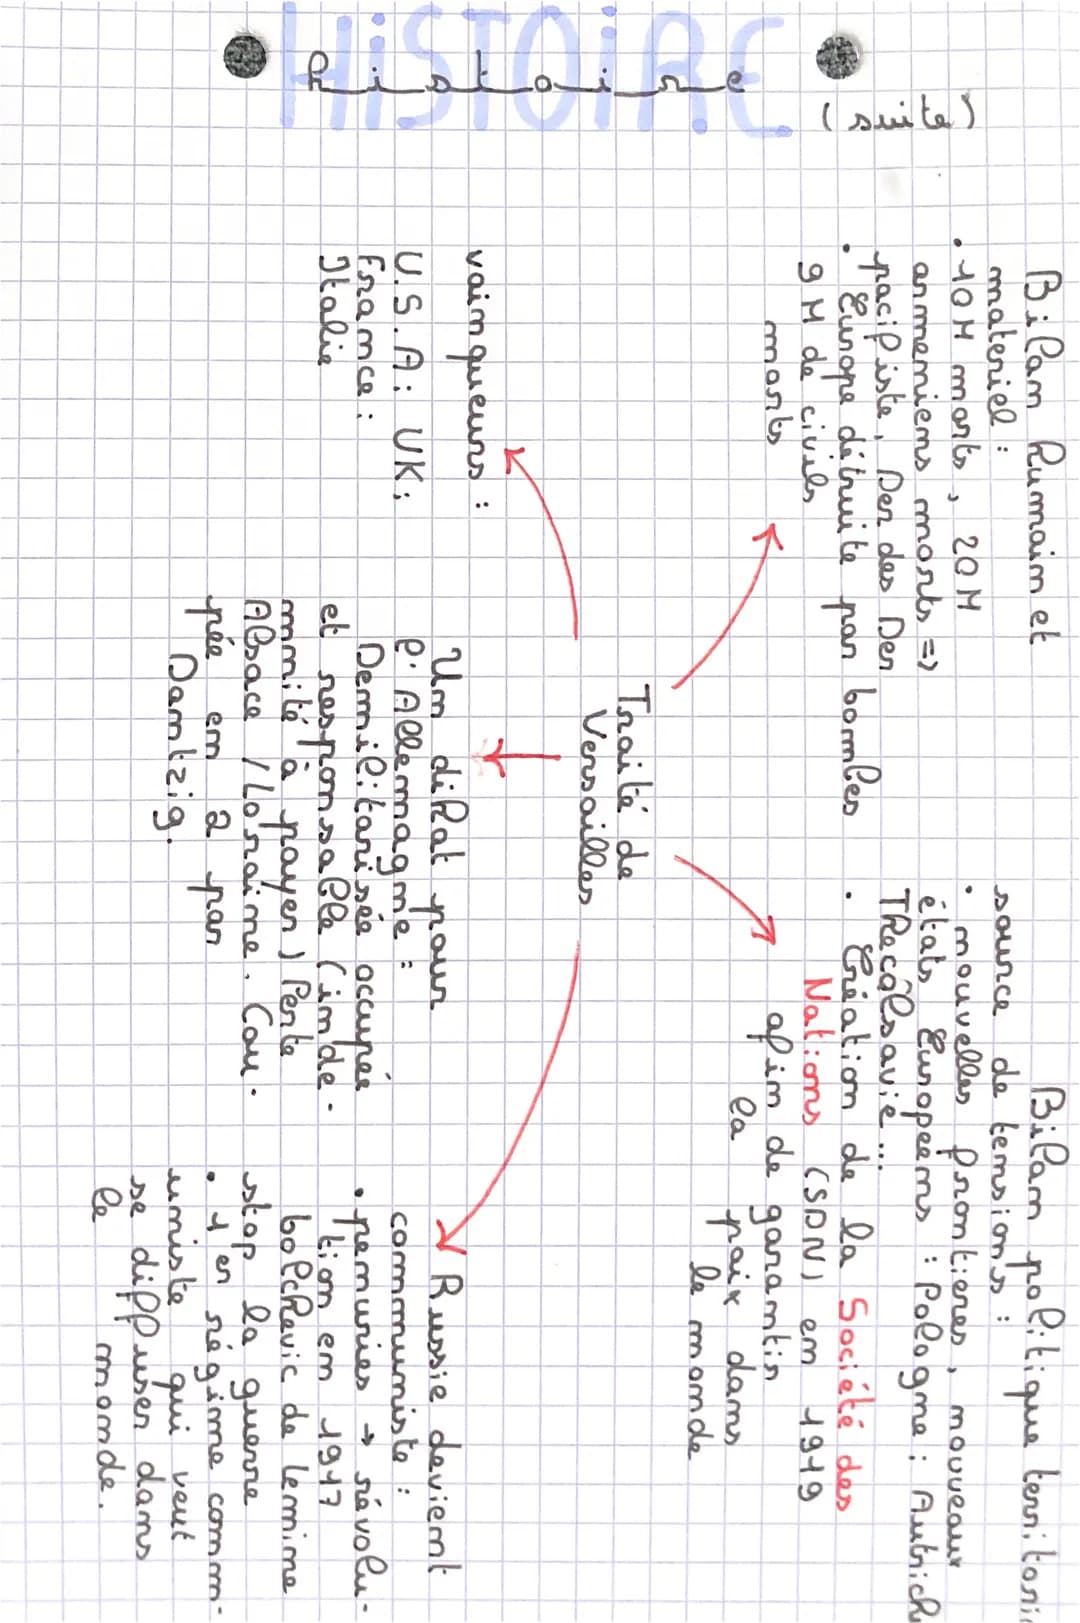 HiSTOiRE
histoire
(suite)
Bilan humain et
materiel :
• 10M morts, 20M
armeniens morts =>
pacifiste, Der des Der
• Europe détruite par bombes
9 M de civils
morts
Bilan politique
source de tensions :
• nouvelles frontieres, nouveaux
états Européens : Pologne ; Autriche
Thecòlsavie...
• Création de la Société des
Nations (SDN) en 1919
afin de garantir
la paix dans
le monde
Traité de
Versailles
vainqueurs :
U.S.A ; UK ;
France ;
Italie
Un dikat pour
l'Allemagne :
Demilitarisée occupée
et responsable (inde-
mnité à payer) Perte
Alsace / Loraine. Cou-
pée en 2 par
Dantzig.
Russie devient
communiste :
• penuries → révolu-
tion en 1917
bolchevic de lenine
stop la guerre
• 1er régime comm-
uniste qui veut
se diffuser dans
le monde.